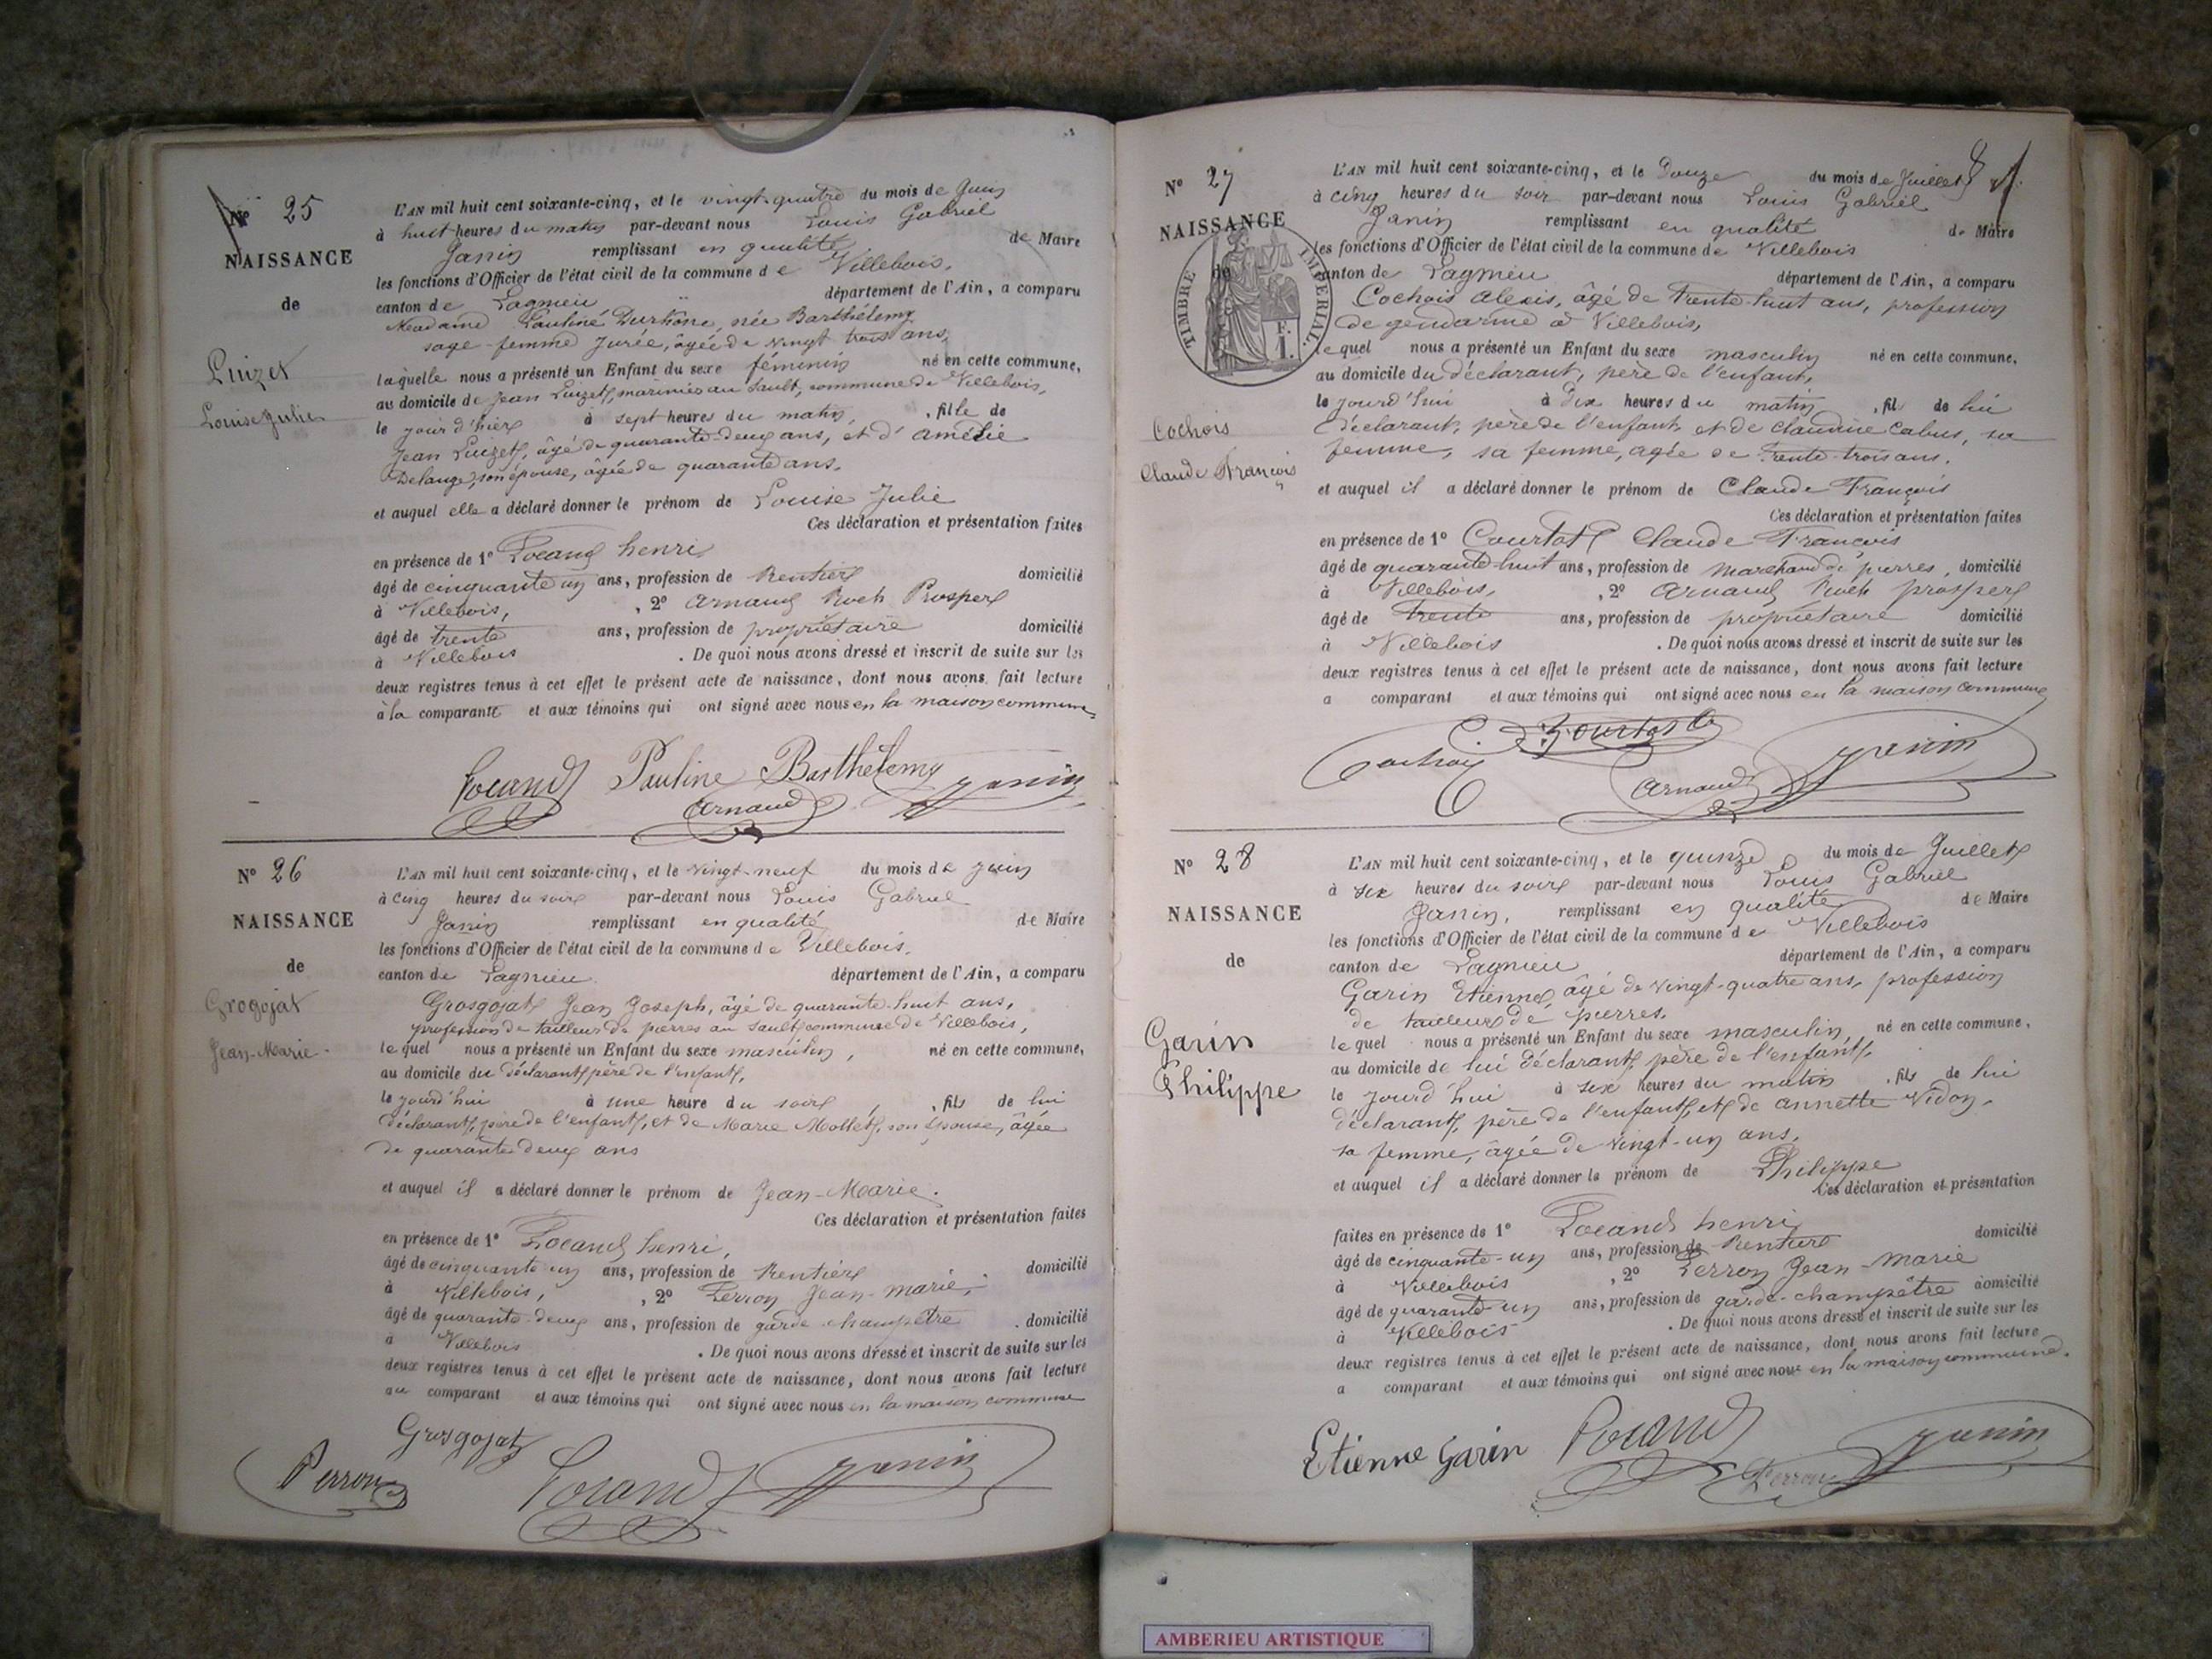 N° 25
NAISSANCE
de
Luizet
Louise Julie
L'AN mil huit cent soixante-cinq, et le vingt-quatre du mois de Juin
à huit heures du matin par-devant nous Louis Gabriel
Janin remplissant en qualité de Maire
les fonctions d'Officier de l'état civil de la commune de Villebois,
canton de Lagnieu département de l'Ain, a comparu
Madame Pauline née Barthélemy
sage-femme Jurée, âgée de vingt trois ans,
laquelle nous a présenté un Enfant du sexe féminin né en cette commune,
au domicile de Jean Luizet, marinier au Sault, commune de Villebois,
le jour d'hier à sept heures du matin, fille de
Jean Luizet, âgé de quarante-deux ans, et d'Amélie
Delange, son épouse, âgée de quarante ans.
et auquel elle a déclaré donner le prénom de Louise Julie
Ces déclaration et présentation faites
en présence de 1° Locand henri
âgé de cinquante un ans, profession de Rentier domicilié
à Villebois, , 2° Arnaud Roch Prosper
âgé de trente ans, profession de propriétaire domicilié
à Villebois . De quoi nous avons dressé et inscrit de suite sur les
deux registres tenus à cet effet le présent acte de naissance, dont nous avons fait lecture
à la comparante et aux témoins qui ont signé avec nous en la maison commune
Locand Pauline Barthélemy Janin
Arnaud
N° 26
NAISSANCE
de
Grogojat
Jean-Marie
L'AN mil huit cent soixante-cinq, et le vingt-neuf du mois de Juin
à cinq heures du soir par-devant nous Louis Gabriel
Janin remplissant en qualité de Maire
les fonctions d'Officier de l'état civil de la commune de Villebois,
canton de Lagnieu département de l'Ain, a comparu
Grosgojat Jean Joseph, âgé de quarante-huit ans,
profession de tailleur de pierres au Sault commune de Villebois,
lequel nous a présenté un Enfant du sexe masculin, né en cette commune,
au domicile du déclarant père de l'enfant,
le jourd'hui à une heure du soir , fils de lui
déclarant, père de l'enfant, et de Marie Mollet, son épouse, âgée
de quarante deux ans
et auquel il a déclaré donner le prénom de Jean-Marie.
Ces déclaration et présentation faites
en présence de 1° Locand henri,
âgé de cinquante un ans, profession de Rentier domicilié
à Villebois, , 2° Perron Jean-marie,
âgé de quarante-deux ans, profession de garde-champêtre . domicilié
à Villebois . De quoi nous avons dressé et inscrit de suite sur les
deux registres tenus à cet effet le présent acte de naissance, dont nous avons fait lecture
au comparant et aux témoins qui ont signé avec nous en la maison commune
Grosgojat
Perron Locand Janin
N° 27
NAISSANCE
de
TIMBRE IMPERIAL.
F. I.
Cochois
Claude François
L'AN mil huit cent soixante-cinq, et le Douze du mois de Juillet
à cinq heures du soir par-devant nous Louis Gabriel
Janin remplissant en qualité de Maire
les fonctions d'Officier de l'état civil de la commune de Villebois
canton de Lagnieu département de l'Ain, a comparu
Cochois Alexis, âgé de trente-huit ans, profession
de gendarme à Villebois,
lequel nous a présenté un Enfant du sexe masculin né en cette commune,
au domicile du déclarant, père de l'enfant,
le jourd'hui à Dix heures du matin , fils de lui
déclarant, père de l'enfant et de Claudine Cabus, sa
femme, sa femme, agée de trente-trois ans.
et auquel il a déclaré donner le prénom de Claude François
Ces déclaration et présentation faites
en présence de 1° Courtot Claude François
âgé de quarante-huit ans, profession de Marchand de pierres, domicilié
à Villebois, , 2° Arnaud Roch prosper
âgé de trente ans, profession de propriétaire domicilié
à Villebois . De quoi nous avons dressé et inscrit de suite sur les
deux registres tenus à cet effet le présent acte de naissance, dont nous avons fait lecture
a comparant et aux témoins qui ont signé avec nous en la maison commune
Cochois Courtot Janin
Arnaud
N° 28
NAISSANCE
de
Garin
Philippe
L'AN mil huit cent soixante-cinq, et le quinze du mois de Juillet
à six heures du soir par-devant nous Louis Gabriel
Janin, remplissant en qualité de Maire
les fonctions d'Officier de l'état civil de la commune de Villebois
canton de Lagnieu département de l'Ain, a comparu
Garin Etienne, âgé de vingt-quatre ans, profession
de tailleur de pierres.
lequel nous a présenté un Enfant du sexe masculin, né en cette commune,
au domicile de lui déclarant, père de l'enfant,
le jourd'hui à six heures du matin , fils de lui
déclarant, père de l'enfant, et de annette Vidon,
sa femme, âgée de vingt-un ans,
et auquel il a déclaré donner le prénom de Philippe
Ces déclaration et présentation
faites en présence de 1° Locand henri domicilié
âgé de cinquante-un ans, profession de Rentier
à Villebois , 2° Perron Jean-Marie
âgé de quarante-un ans, profession de garde-champêtre domicilié
à Villebois . De quoi nous avons dressé et inscrit de suite sur les
deux registres tenus à cet effet le présent acte de naissance, dont nous avons fait lecture
a comparant et aux témoins qui ont signé avec nous en la maison commune.
Etienne Garin Locand Janin
Perron
AMBERIEU ARTISTIQUE